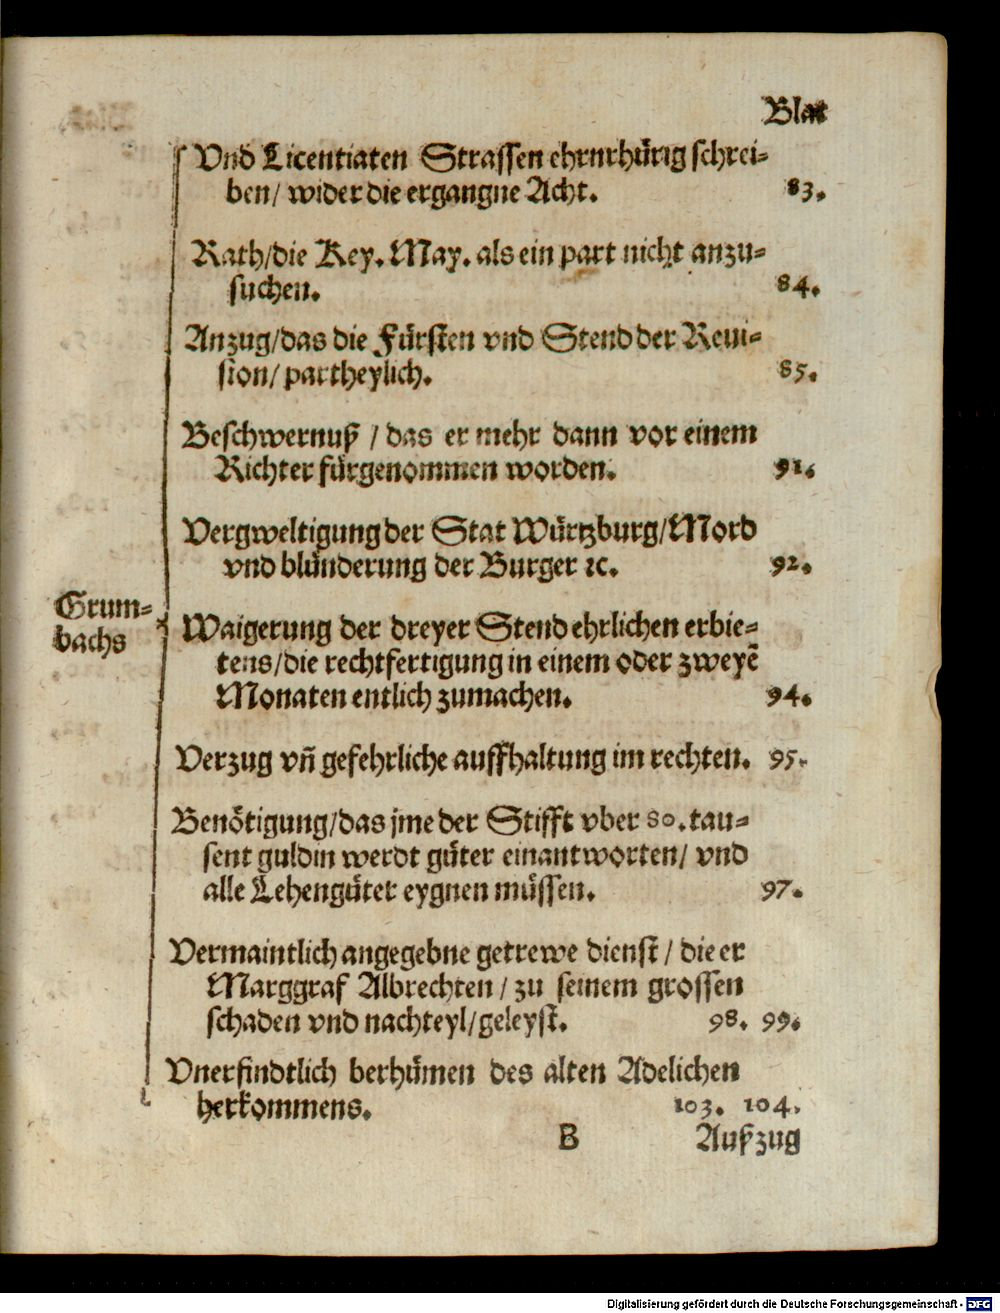 Blat
Vnd Licentiaten Strassen ehrnrhürig schrei-
ben/ wider die ergangne Acht. 83.
Rath/die Key. May. als ein part nicht anzu-
suchen. 84.
Anzug/das die Fürsten vnd Stend der Reui-
sion/ partheylich. 85.
Beschwernuß / das er mehr dann vor einem
Richter fürgenommen worden. 91.
Vergweltigung der Stat Würtzburg/Mord
vnd blünderung der Burger ꝛc. 92.
Grum-
bachs
Waigerung der dreyer Stend ehrlichen erbie-
tens/die rechtfertigung in einem oder zweyẽ
Monaten entlich zumachen. 94.
Verzug vñ gefehrliche auffhaltung im rechten. 95.
Benötigung/das jme der Stifft vber 80.tau-
sent guldin werdt güter einantworten/ vnd
alle Lehengüter eygnen müssen. 97.
Vermaintlich angegebne getrewe dienst / die er
Marggraf Albrechten / zu seinem grossen
schaden vnd nachteyl/geleyst. 98. 99.
Vnerfindtlich berhümen des alten Adelichen
herkommens. 103. 104.
B Außzug
Digitalisierung gefördert durch die Deutsche Forschungsgemeinschaft - DFG